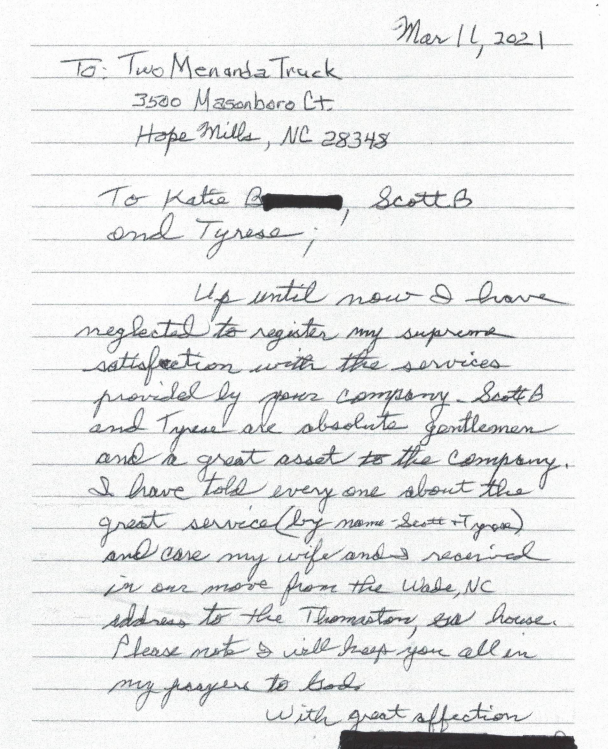 Mar 11, 2021
To: Two Men and a Truck
3500 Masonboro Ct.
Hope Mills, NC 28348
To Katie B, Scott B
and Tyrese;
Up until now I have
neglected to register my supreme
satisfaction with the services
provided by your company. Scott B
and Tyrese are absolute gentlemen
and a great asset to the company.
I have told every one about the
great service (by name - Scott + Tyrese)
and care my wife and I received
in our move from the Wade, NC
address to the Thomaston, GA house.
Please note I will keep you all in
my prayers to God.
With great affection